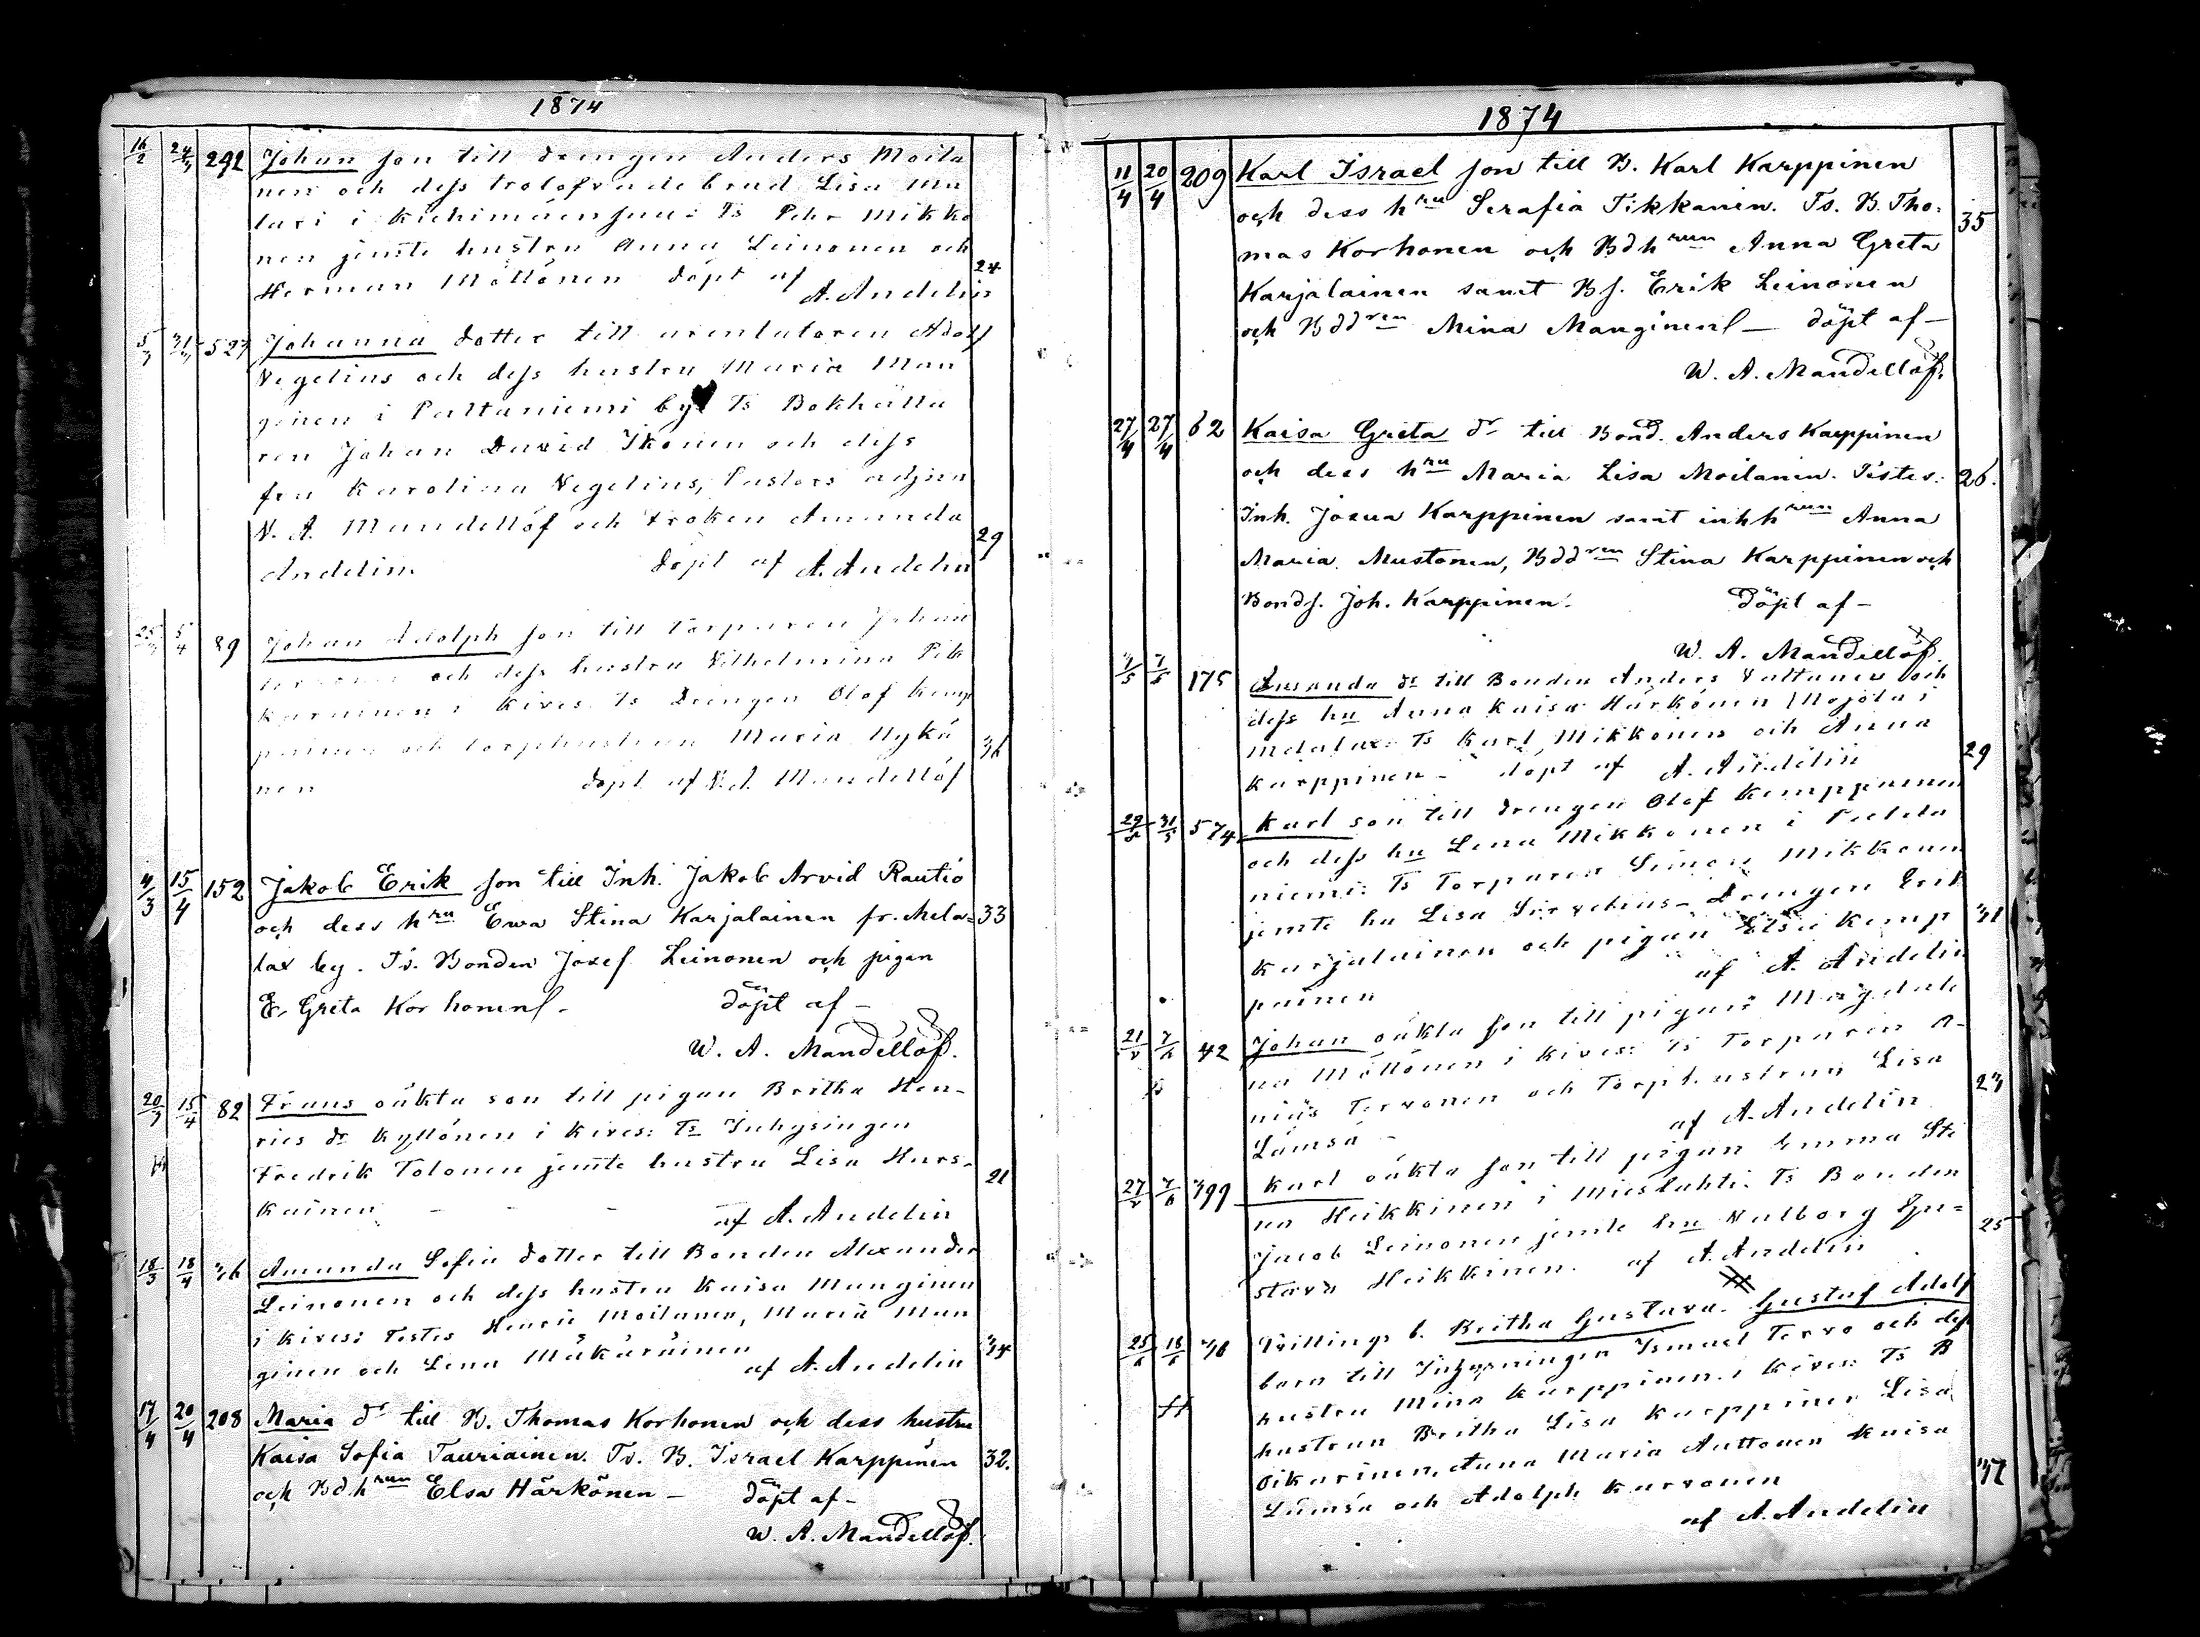 1874
16/2 24/3 292 Johan son till drengen Anders Moila
nen och dess trolofvade brud Lisa Mu
lari i Kiehimäensuu: Ts Pehr Mikko
nen jemte hustru Anna Leinonen och
Herman Möttönen döpt af 24
A. Andelin
5/3 31/3 527 Johanna dotter till arentatoren Adolf
Vegelius och dess hustru Maria Man
ginen i Paltaniemi by Ts Bokhålla
ren Johan David Ikonen och dess
fru Karolina Vegelius, Pastors adjun
V. A. Mandellöf och Froken Amanda
Andelin. döpt af A. Andelin 29
5/4 89 Johan Adolph son till torparen Johan
och dess hustru Vilhelmina Pik
karainen i Kives. Ts Drengen Olof Kemp
painen och torphustrun Maria Nykä 36
nen döpt af V. A. Mandellöf
4/3 15/4 152 Jakob Erik son till Inh. Jakob Arvid Rautio
och dess hru Ewa Stina Karjalainen fr. Mela= 33
lax by. Ts. Bonden Josef Leinonen och pigan
E. Greta Korhonen. döpt af –
W. A. Mandellöf.
20/3 15/4 82 Frans oäkta son till pigan Britha Hen-
ries dr Kyllönen i Kives: Ts Inhysingen
Fredrik Tolonen jemte hustru Lisa Hurs- 21
kainen – – – af A. Andelin
18/3 18/4 36 Amanda Sofia dotter till Bonden Alexander
Leinonen och dess hustru Kaisa Manginen
i Kives: Testes Henrik Moilanen, Maria Man
ginen och Lena Mäkäräinen 34
af A. Andelin
17/4 20/4 208 Maria dr till B. Thomas Korhonen och dess hustru
Kaisa Sofia Tauriainen. Ts. B. Israel Karppinen 32.
och Bdhrun Elsa Härkönen – döpt af –
W. A. Mandellöf.
1874
11/4 20/4 209 Karl Israel son till B. Karl Karppinen
och dess hru Serafia Tikkanen. Ts. B. Tho- 35
mas Korhonen och Bdhrun Anna Greta
Karjalainen samt Bs. Erik Leinonen
och Bddren Mina Manginen – döpt af –
W. A. Mandellöf.
27/4 27/4 62 Kaisa Greta dr till Bond. Anders Karppinen
och dess hru Maria Lisa Moilanen. Testes: 26.
Inh. Josua Karppinen samt inhhrun Anna
Maria Mustonen, Bddren Stina Karppinen och
Bonds. Joh. Karppinen. döpt af –
W. A. Mandellöf.
175 Amanda dr till Bonden Anders Valtanen och
dess hu Anna Kaisa Härkönen i
Melalax: Ts Karl Mikkonen och Anna 29
Karppinen – döpt af A. Andelin
29/5 31/5 574 Karl son till drengen Olof Kemppainen
och dess hu Lena Mikkonen i Paleta
niemi: Ts Torparen Simon Mikkonen
jemte hu Lisa – Drengen Erik
Karjalainen och pigan Elsa Kemp
painen af A. Andelin
21/5 7/6 42 Johan oäkta son till pigan Magdale
na Möttönen i Kives: Ts Torparen A-
nias Tervonen och Torphustrun Lisa 23
Lämsä – af A. Andelin
27/5 7/6 399 Karl oäkta son till pigan Emma Sti
na Heikkinen i Mieslahti: Ts Bonden
Jacob Leinonen jemte hu Valborg Gu= 25
stava Heikkinen. af A. Andelin
36 Tvillings b. Britha Gustava. Gustaf Adolf
barn till Inhysningen Ismael Tervo och dess
hustru Mina Karppinen i Kives: Ts B
hustrun Britha Lisa Karppinen Lisa
Oikarinen, Anna Maria Anttonen Kaisa
Lämsä och Adolph Karvonen 37
af A. Andelin